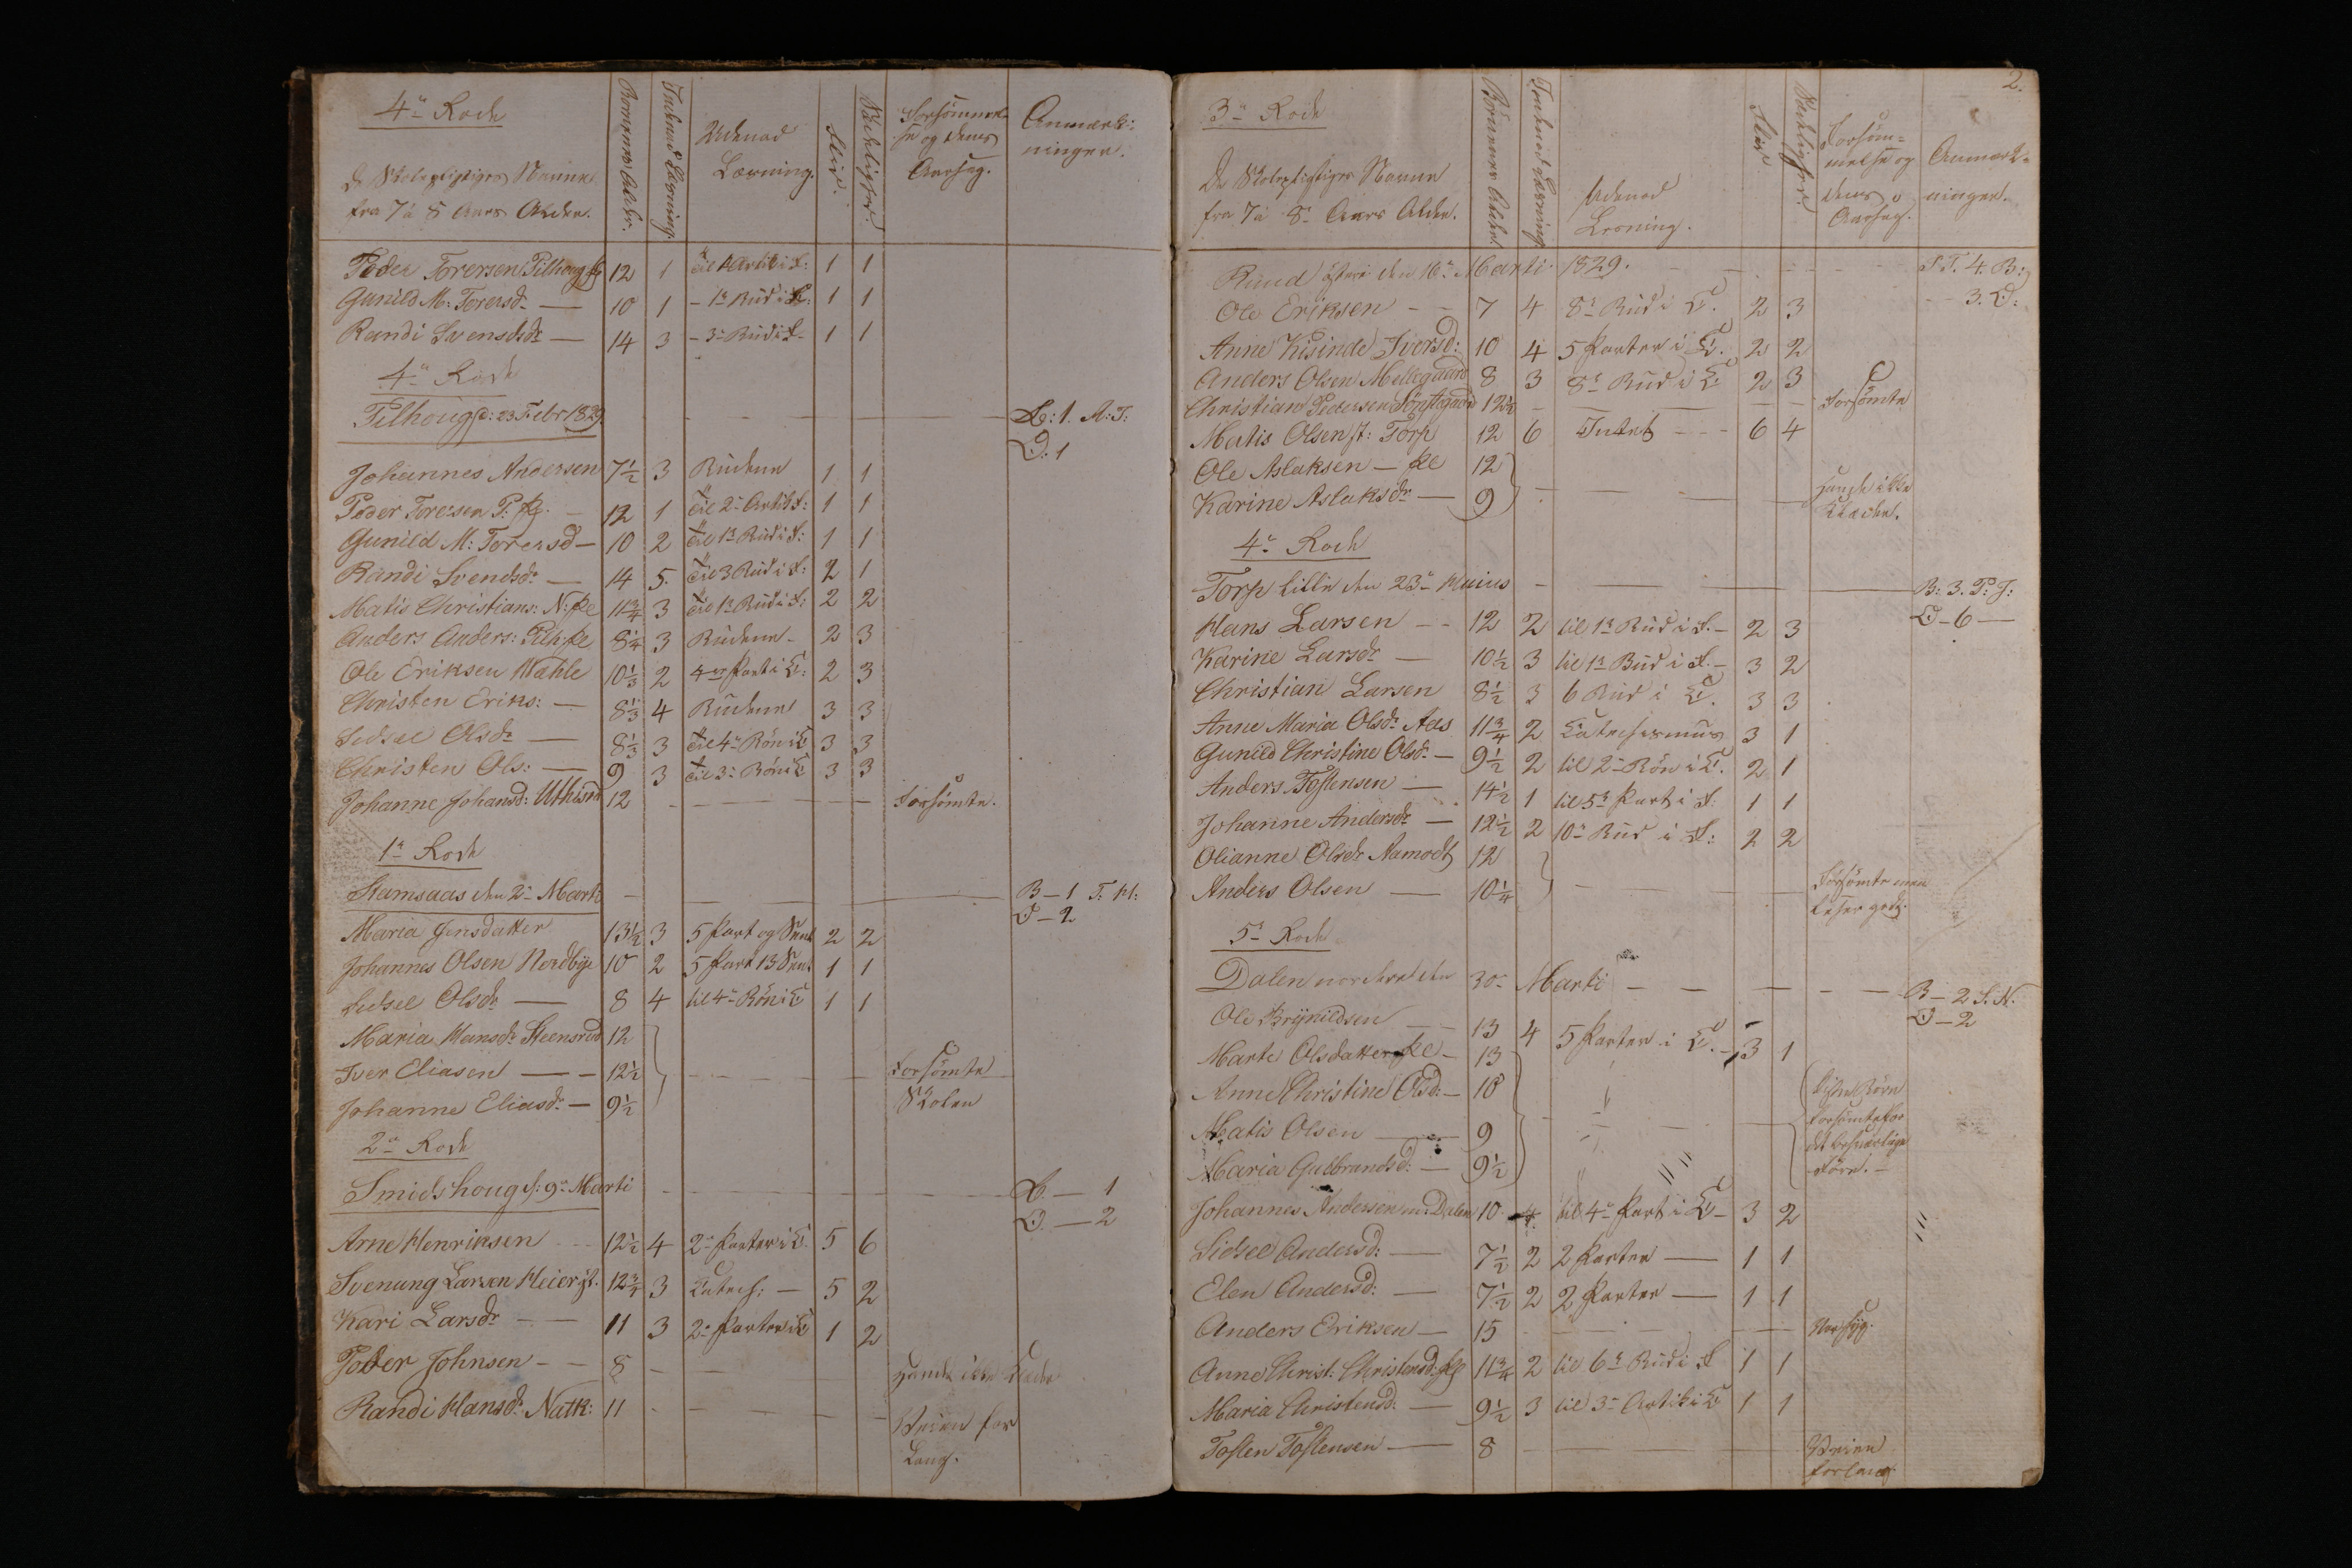 4de Rode
De Skolepligtiges Navne
fra 7 à 8 Aars Alder.
Børnenes Alder.
Indenad Læsning.
Udenad Læsning.
Flid.
Sædelighed.
Forsømmelse og denes Aarsag.
Anmærkninger.
Peder Torersen Pilhoug 12 1 til Artik i F: 1 1
Gunild M: Torersdr — 10 1 - 1ste Bud i F: 1 1
Randi Svensdr — 14 3 - 3de Bud i F - 1 1
4de Rode
Pilhoug d: 23 Febr 1829. B: 1. A: T:
D: 1
Johannes Andersen 7½ 3 Budene 1 1
Peder Toresen P: 12 1 til 2de Artik F: 1 1
Gunild M: Torersd — 10 2 til 1ste Bud i F: 1 1
Randi Svendsdr — 14 5. til 3 Bud i F: 2 1
Matis Christians: N: 11¾ 3 til 1ste Bud i F: 2 2
Anders Anders: Pilh: 8¼ 3 Budene - 2 3
Ole Eriksen Wahle 10⅓ 2 4 Part i C: 2 3
Christen Eriks: — 8⅓ 4 Budene 3 3
Sidsel Olsdr — 8⅓ 3 til 4de Bøn i C 3 3
Christen Ols: — 9 3 til 3de Bøn i C 3 3
Johanne Johansd: 12 Forsømte.
1ste Rode
den 2den Marti B — 1 T:
D — 2
Maria Jensdatter 13½ 3 5 Part og 2 2
Johannes Olsen Nordbye 10 2 5 Part 13 1 1
Sidsel Olsdr — 8 4 til 4de Bøn i C 1 1
Maria Hansdr Steensrud 12
Iver Eliasen — 12½ Forsømte
Johanne Eliasdr — 9½ Skolen
2den Rode
Smidshoug d: 9de Marti B. — 1
D. — 2
Arne Henriksen 12½ 4 2de Parter i C. 5 6
Svenung Larsen 12¾ 3 Catech: — 5 2
Kari Larsdr — 11 3 2de Parter i C 1 2
Peder Johnsen — 8 Havde ikke Klæder
Randi Hansdr. Natk: 11 Veien for
Lang.
2.
3de Rode
De Skolepligtiges Navne
fra 7 à 8te Aars Alder.
Børnenes Alder.
Indenad Læsning.
Udenad Læsning.
Flid
Sædelighed.
Forsømmelse og denes Aarsag.
Anmærkninger.
Rund østre den 16de Marti 1829. T. 4. B:
3. D:
Ole Eriksen — 7 4 8de Bud i C. 2 3
Anne Kisinde Iversd: 10 4 5 Parter i C. 2 2
Anders Olsen Mellegaard 8 3 8de Bud i C 2 3
Christian Pedersen 12½ Forsømte
Matis Olsen st: Torp 12 6 Intet 6 4
Ole Aslaksen — 12
Karine Aslaksdr — 9 Havde ikke
Klæder.
4de Rode
Torp lille den 23de B: 3. P: J:
D — 6 —
Hans Larsen — 12 2 til 1ste Bud i F. — 2 3
Karine Larsdr — 10½ 3 til 1ste Bud i F. — 3 2
Christian Larsen 8½ 3 6 Bud i C. 3 3
Anne Maria Olsdr Aas 11¾ 2 Catechismus 3 1
Gunild Christine Olsd. — 9½ 2 til 2den Bøn i C. 2 1
Anders Tostensen — 14½ 1 til 5te Part i F. 1 1
Johanne Andersdr — 12½ 2 10de Bud i F: 2 2
Olianne Olsdr Aamodt 12
Anders Olsen — 10¼ Forsømte men
læser godt.
5te Rode
Dalen nordre den 30te Marti — B — 2 S. N.
D — 2
Ole Brynildsen — 13 4 5 Parter i C. — 3 1
Marte Olsdatter — 13
Anne Christine Olsd: — 10
Matis Olsen — 9
Maria Gulbrandsd: — 9½
Børn
forsømte for
det besværlige
Føre. —
Johannes Andersen n: Dalen 10 4 til 4de Part i C — 3 2
Sidsel Andersd: — 7½ 2 2 Parter — 1 1
Elen Andersd: — 7½ 2 2 Parter — 1 1
Anders Eriksen — 15 Var syg.
Anne Christ: Christensd: 11¾ 2 til 6te Bud i F 1 1
Maria Christensd: — 9½ 3 til 3de Artik i C 1 1
Tosten Tostensen — 8 Veien
for lang